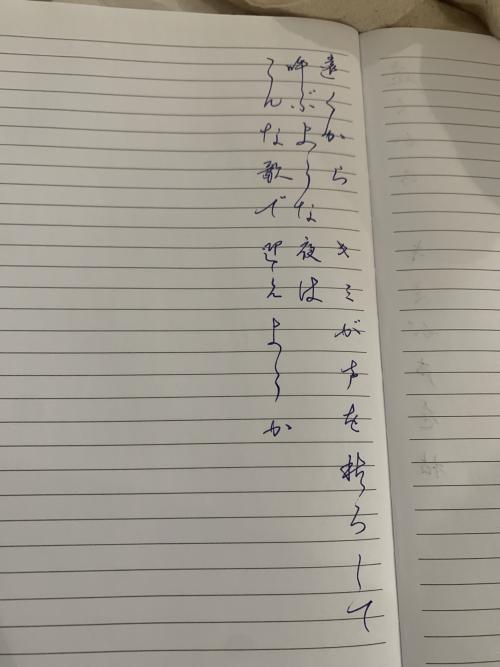 遠くからキミが声を枯らして
叫ぶような夜は
どんな歌で迎えようか